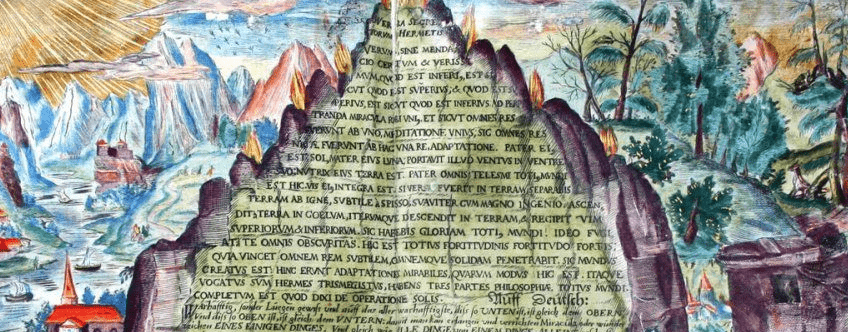 VERBA SECRE
TORUM HERMETIS
VERUM, SINE MENDA
CIO CERTUM & VERISSI
MUM, QUOD EST INFERI, EST
SICUT QUOD EST SUPERIUS; & QUOD EST
SUPERIUS, EST SICUT QUOD EST INFERIUS, AD PER
TRANDA MIRACULA REI UNI, ET SICUT OMNES RES
FUERUNT AB UNO, MEDITATIONE UNIUS, SIC OMNES RES
NATÆ FUERUNT AB HAC UNA RE, ADAPTATIONE. PATER EI
EST SOL, MATER EIUS LUNA, PORTAVIT ILLUD VENTUS IN VENTRE
SUO, NUTRIX EIUS TERRA EST. PATER OMNIS TELESMI TOTI, MUNDI
EST HIC. VIS EI, INTEGRA EST, SI VERSA FUERIT IN TERRAM, SEPARABIS
TERRAM AB IGNE, SUBTILE A SPISSO, SUAVITER CUM MAGNO INGENIO. ASCEN
DIT A TERRA IN COELUM, ITERUMQUE DESCENDIT IN TERRAM, & RECIPIT VIM
SUPERIORUM & INFERIORUM. SIC HABEBIS GLORIAM TOTI, MUNDI. IDEO FUGI
AT A TE OMNIS OBSCURITAS. HIC EST TOTIUS FORTITUDINIS FORTITUDO FORTIS;
QUIA VINCET OMNEM REM SUBTILEM, OMNEMQUE SOLIDAM PENETRABIT. SIC MUNDUS
CREATUS EST. HINC ERUNT ADAPTATIONES MIRABILES, QUARUM MODUS HIC EST. ITAQUE
VOCATUS SUM HERMES TRISMEGISTUS, HABENS TRES PARTES PHILOSOPHIÆ TOTIUS MUNDI.
COMPLETUM EST QUOD DIXI DE OPERATIONE SOLIS. Auff Deutsch:
Warhafftig, sonder Lügen gewiß und auff das aller warhafftigste, diß so UNTEN, ist gleich dem OBERN
Und diß so OBEN ist, gleich dem UNTERN: damit man kan erlangen und verrichten Miracula oder wunder
zeichen EINES EINIGEN DINGES. Und gleich wie ALLE DINGE von EINEM DINGE ALLEINE